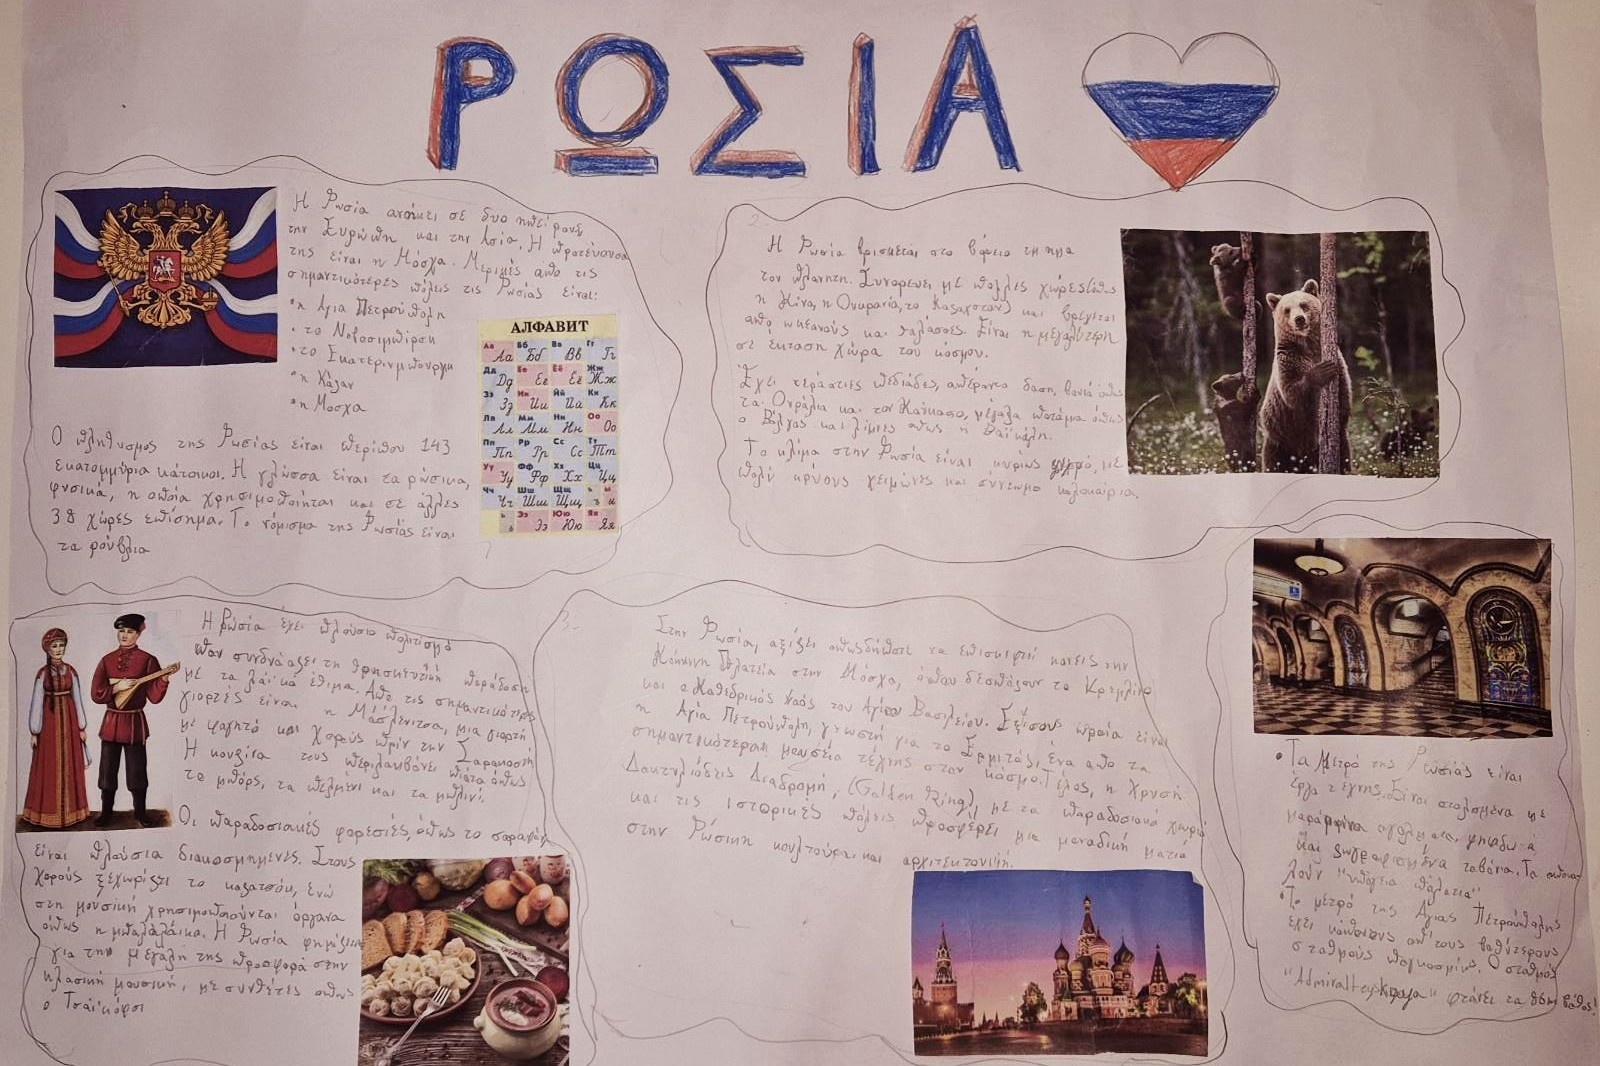 ΡΩΣΙΑ
Η Ρωσία ανήκει σε δυο ηπείρους
την Ευρώπη και την Ασία. Η πρωτεύουσα
της είναι η Μόσχα. Μερικές απο τις
σημαντικότερες πόλεις τις Ρωσίας είναι:
•η Αγια Πετρούπολη
•το Νοβοσιμπίρσκ
•το Εκατερινμπουργκ
•η Κάζαν
•η Μοσχα
Ο πληθυσμος της Ρωσίας είναι περίπου 143
εκατομμύρια κάτοικοι. Η γλώσσα είναι τα ρώσικα,
φυσικά, η οποία χρησιμοποιήται και σε άλλες
38 χώρες επίσημα. Το νόμισμα της Ρωσίας είναι
τα ρούβλια
АЛФАВИТ
Аа Бб Вв Гг
Дд Ее Ёё Жж
Зз Ии Йй Кк
Лл Мм Нн Оо
Пп Рр Сс Тт
Уу Фф Хх Цц
Чч Шш Щщ ъ ы
ь Ээ Юю Яя
2
Η Ρωσία βρισκεται στο βόρειο τμημα
του πλανητη. Συνορευει με πολλες χώρες(όπως
η Κίνα, η Ουκρανία, το Καζακσταν) και βρέχεται
απο ωκεανούς και θαλασσες. Είναι η μεγαλύτερη
σε έκταση χώρα του κόσμου.
Έχει τεράστιες πεδιάδες, απέραντα δαση, βουνά όπως
τα Ουράλια και τον Καύκασο, μεγάλα ποτάμια όπως
ο Βόλγας και λίμνες οπως η Βαϊκάλη.
Το κλίμα στην Ρωσία είναι κυρίως ψυχρό, με
πολύ κρύους χειμώνες και σύντομα καλοκαίρια.
Η Ρώσία έχει πλούσιο πολιτισμό
που συνδυάζει τη θρησκευτική παράδοση
με τα λαϊκά έθιμα. Απο τις σημαντικότερες
γιορτές είναι η Μάσλενιτσα, μια γιορτή
με φαγητό και χορούς πριν την Σαρακοστή
Η κουζίνα τους περιλαμβάνει πιάτα όπως
το μπόρς, τα πελμένι και τα μπλινί.
Οι παραδοσιακές φορεσιές, όπως το σαραφάν
είναι πλούσια διακοσμημένες. Στους
χορούς ξεχωρίζει το καζατσόκ, ενώ
στη μουσική χρησιμοποιούνται όργανα
όπως η μπαλαλάικα. Η Ρωσία φημίζεται
για την μεγάλη της προσφορά στην
κλασική μουσική, με συνθέτες οπως
ο Τσαϊκόφσκι
3.
Στην Ρωσία, αξίζει οπωσδήποτε να επισκεφτεί κανείς την
Κόκκινη Πλατεία στην Μόσχα, όπου δεσπόζουν το Κρεμλίνο
και ο Καθεδρικός Ναός του Αγίου Βασιλείου. Εξίσου ωραία είναι
η Αγία Πετρούπολη, γνωστή για το Ερμιτάζ, ένα απο τα
σημαντικότερα μουσεία τέχνης στον κόσμο. Τέλος, η Χρυσή
Δακτυλιοδεις Διαδρομή, (Golden Ring), με τα παραδοσιακά χωριά
και τις ιστορικές πόλεις προσφέρει μια μοναδική ματιά
στην Ρώσικη κουλτούρα και αρχιτεκτονική.
•Τα Μετρό της Ρωσίας είναι
έργα τέχνης. Είναι στολισμένα με
μαρμάρινα αγάλματα, ψηφιδωτά
και ζωγραφισμένα ταβάνια. Τα
λούν "υπόγεια παλάτια"
•Το μετρό της Αγιας Πετρούπολης
εχει κάποιους απ'τους βαθύτερους
σταθμούς παγκοσμίως. Ο σταθμός
"Admiralteyskaya" φτάνει τα 86μ βάθος!